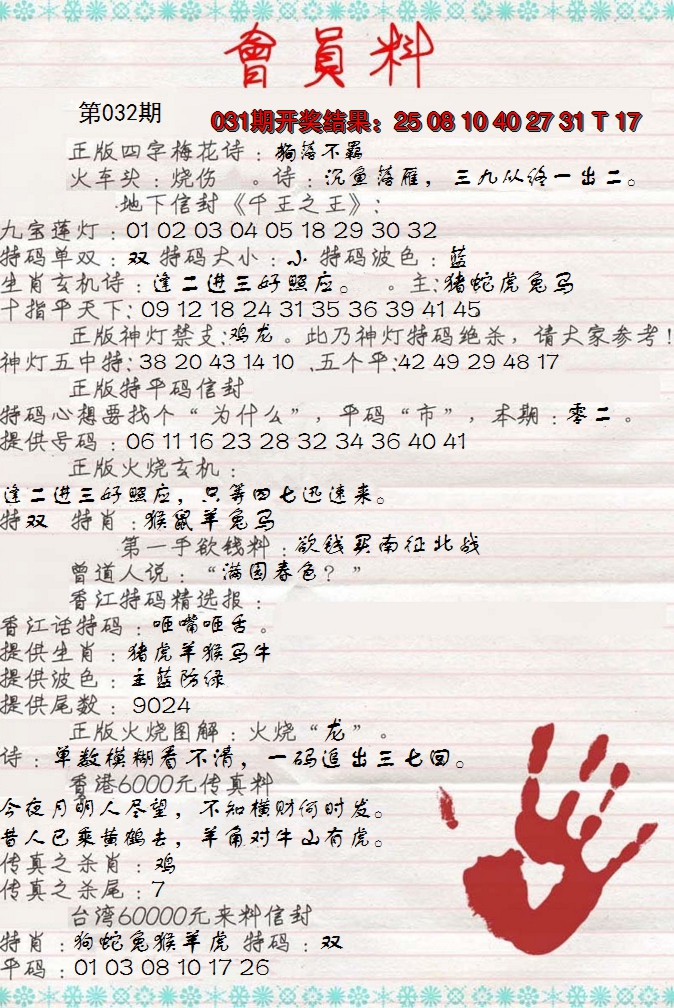 會員料
第032期
031期开奖结果：25 08 10 40 27 31 T 17
正版四字梅花诗：狗落不羁
火车头：烧伤 。诗：沉鱼落雁，三九从终一出二。
地下信封《千王之王》：
九宝莲灯：01 02 03 04 05 18 29 30 32
特码单双：双 特码大小：小 特码波色：蓝
生肖玄机诗：逢二进三好照应。 。主：猪蛇虎兔马
十指平天下：09 12 18 24 31 35 36 39 41 45
正版神灯禁支：鸡龙。此乃神灯特码绝杀，请大家参考！
神灯五中特：38 20 43 14 10 、五个平：42 49 29 48 17
正版特平码信封
特码心想要找个“为什么”，平码“市”，本期：零二。
提供号码：06 11 16 23 28 32 34 36 40 41
正版火烧玄机：
逢二进三好照应，只等四七迅速来。
特双 特肖：猴鼠羊兔马
第一手欲钱料：欲钱买南征北战
曾道人说：“满园春色？”
香江特码精选报：
香江话特码：咂嘴咂舌。
提供生肖：猪虎羊猴马牛
提供波色：主蓝防绿
提供尾数：9024
正版火烧图解：火烧“龙”。
诗：单数模糊看不清，一码追出三七回。
香港6000元传真料
今夜月明人尽望，不知横财何时发。
昔人已乘黄鹤去，羊角对牛山有虎。
传真之杀肖：鸡
传真之杀尾：7
台湾60000元来料信封
特肖：狗蛇兔猴羊虎 特码：双
平码：01 03 08 10 17 26